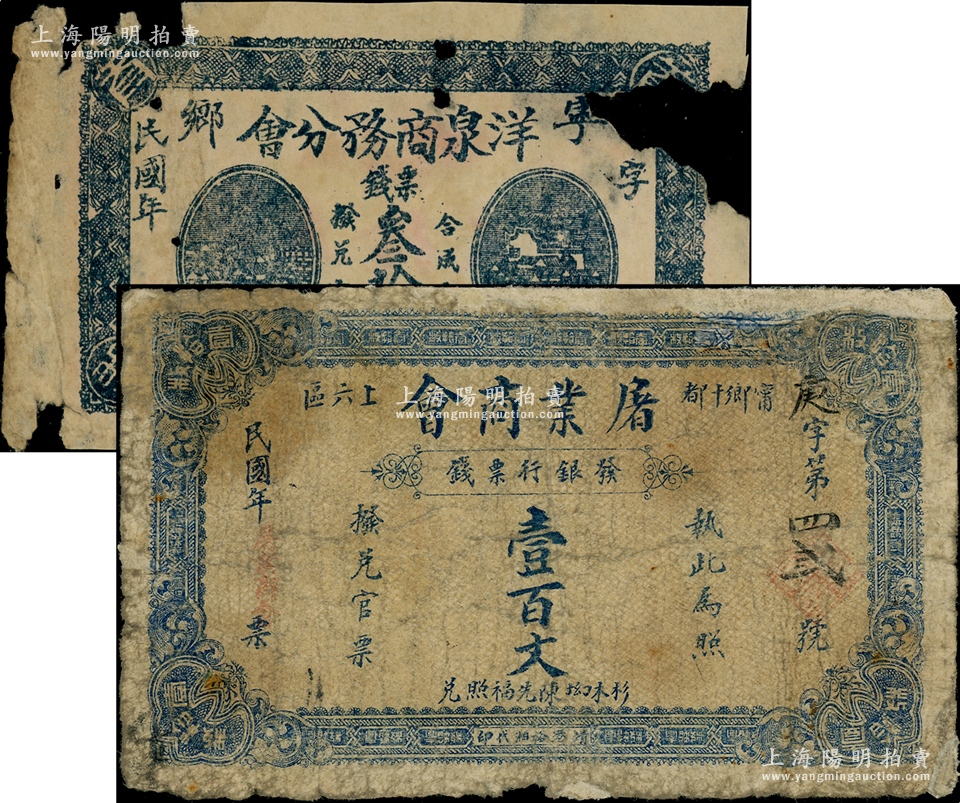 上海陽明拍賣
www.yangmingauction.com
寧
洋泉商務分會
鄉
字
民國年
票錢
叁拾
合成
撥兑
甯鄉十都
屠業商會
上六區
發銀行票錢
庚字第四弍號
執此為照
壹百文
撥兑官票
民國年
票
杉木坳陳先福照兑
上海陽明拍賣
www.yangmingauction.com
上海陽明拍賣
www.yangmingauction.com